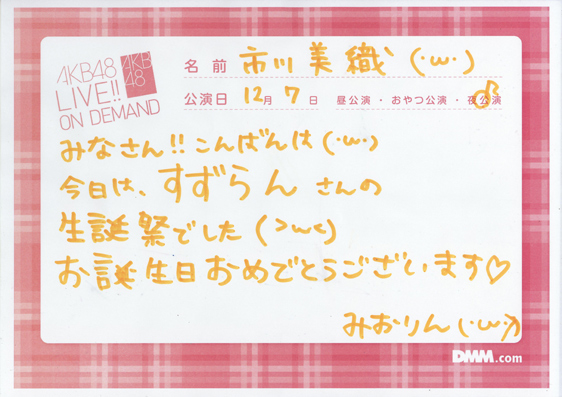 AKB48
LIVE!!
ON DEMAND
AKB
48
名前 市川美織(・ω・)
公演日 12月 7日 昼公演・おやつ公演・夜公演
みなさん!!こんばんは(・ω・)
今日は、すずらんさんの
生誕祭でした(>ω<)
お誕生日おめでとうございます♡
みおりん(・ω・)
DMM.com